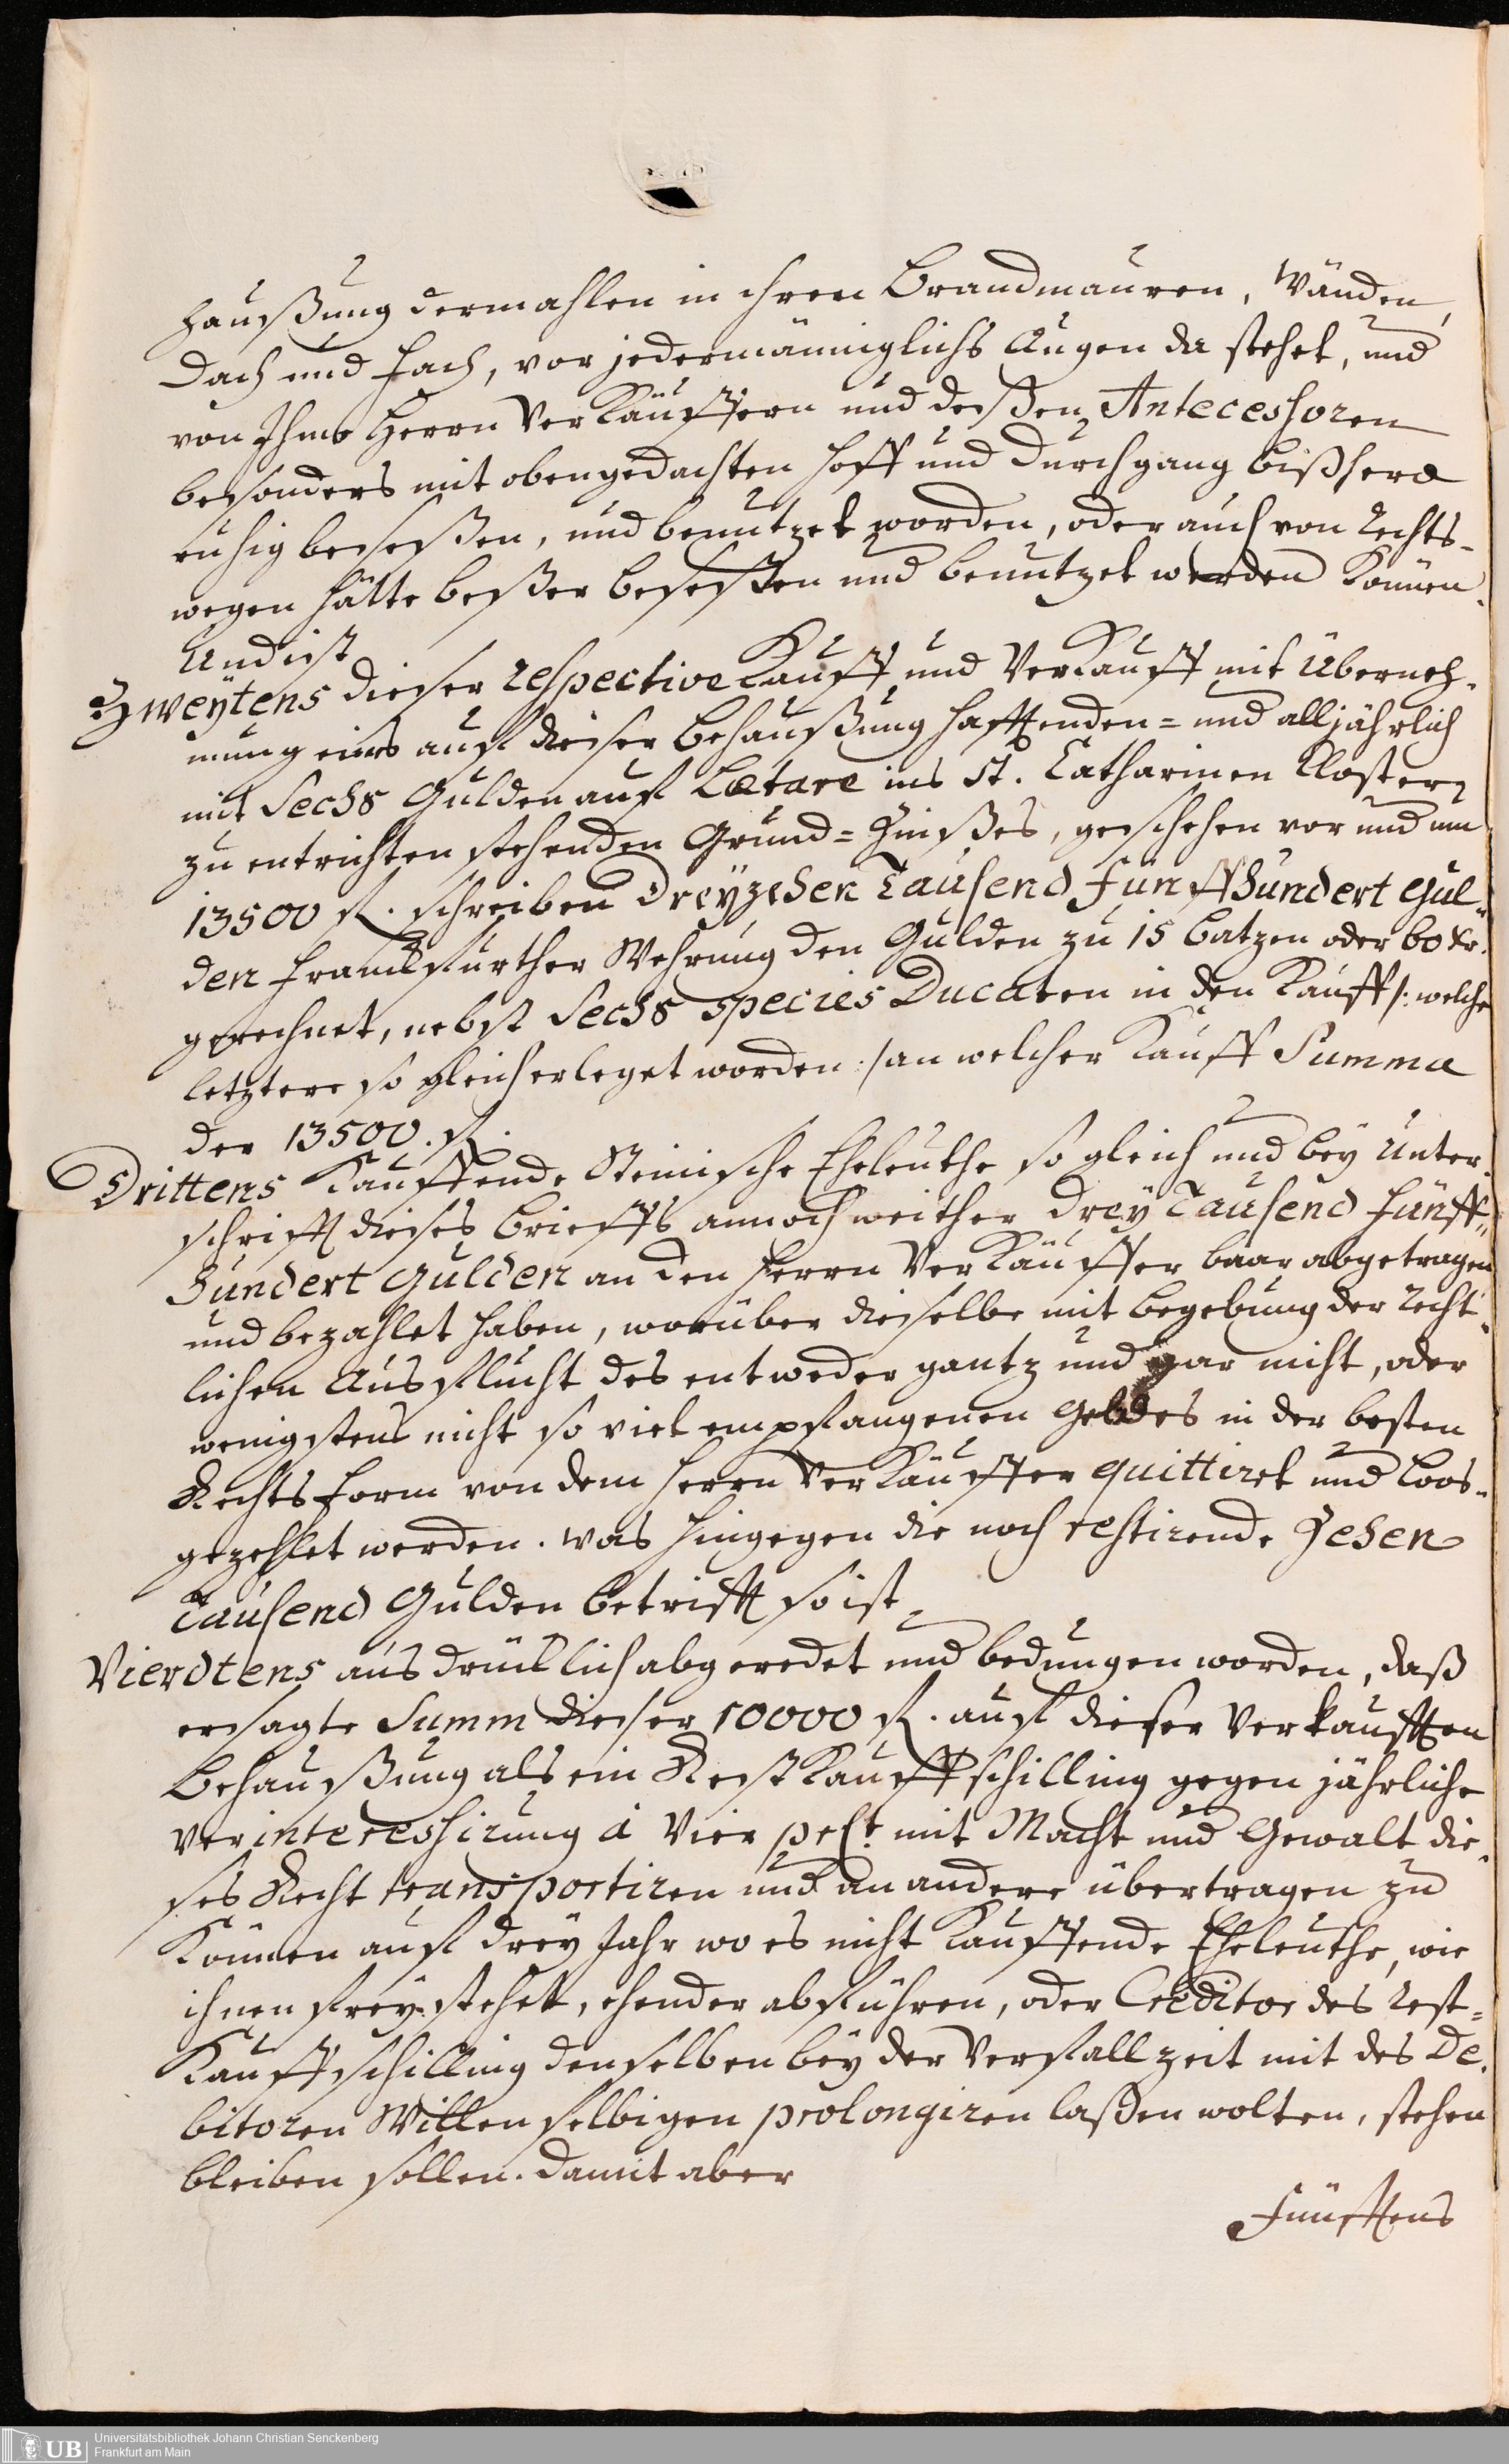 haußung dermahlen in ihren Brandmauren, Wänden,
Dach und Fach, vor jedermänniglichs Augen da stehet, und
von Ihme Herrn Verkäuffern und deßen Antecessoren
besonders mit obengedachten Hoff und Durchgang bißhero
ruhig beseßen, und benutzet worden, oder auch von Rechts-
wegen hätte beßer beseßen und benutzet werden können.
Und ist
Zweytens dieser respective Kauff und Verkauff mit Überneh-
mung eines auf dieser Behaußung hafftenden= und alljährlich
mit Sechs Gulden auf Lætare ins St. Catharinen Closter
zu entrichten stehenden Grund=Zinßes, geschehen vor und um
13500 fl. schreiben Dreyzehen Tausend Fünffhundert Gul-
den Franckfurther Wehrung den Gulden zu 15 Batzen oder 60 Xr.
gerechnet, nebst Sechs Species Ducaten in den Kauff /: welche
letztere so gleich erleget worden :/ an welcher Kauff Summa
der 13500. fl.
Drittens Kauffende Steinische Eheleuthe so gleich und bey Unter-
schrifft dieses Brieffs annoch weither Drey Tausend Fünff-
hundert Gulden an den Herrn Verkäuffer baar abgetragen
und bezahlet haben, worüber dieselbe mit Begebung der Recht-
lichen Ausflucht des entweder gantz und gar nicht, oder
wenigstens nicht so viel empfangenen Geldes in der besten
Rechts Form von dem Herrn Verkäuffer quittiret und loos-
gezehlet werden. Was hingegen die noch restirende Zehen
Tausend Gulden betrifft so ist
Vierdtens ausdrücklich abgeredet und bedungen worden, daß
ersagte Summ dieser 10000 fl. auf dieser verkaufften
Behaußung als ein Rest Kauffschilling gegen jährliche
Verinteressirung á Vier prCt. mit Macht und Gewalt die-
ses Recht transportiren und an andere übertragen zu
können auf drey Jahr wo es nicht Kauffende Eheleuthe, wie
ihnen frey stehet, ehender abführen, oder Creditor des Rest-
Kauffschilling denselben bey der Verfallzeit mit des De-
bitoren Willen selbigen prolongiren laßen wolten, stehen
bleiben sollen. Damit aber
Fünfftens
UB
Universitätsbibliothek Johann Christian Senckenberg
Frankfurt am Main